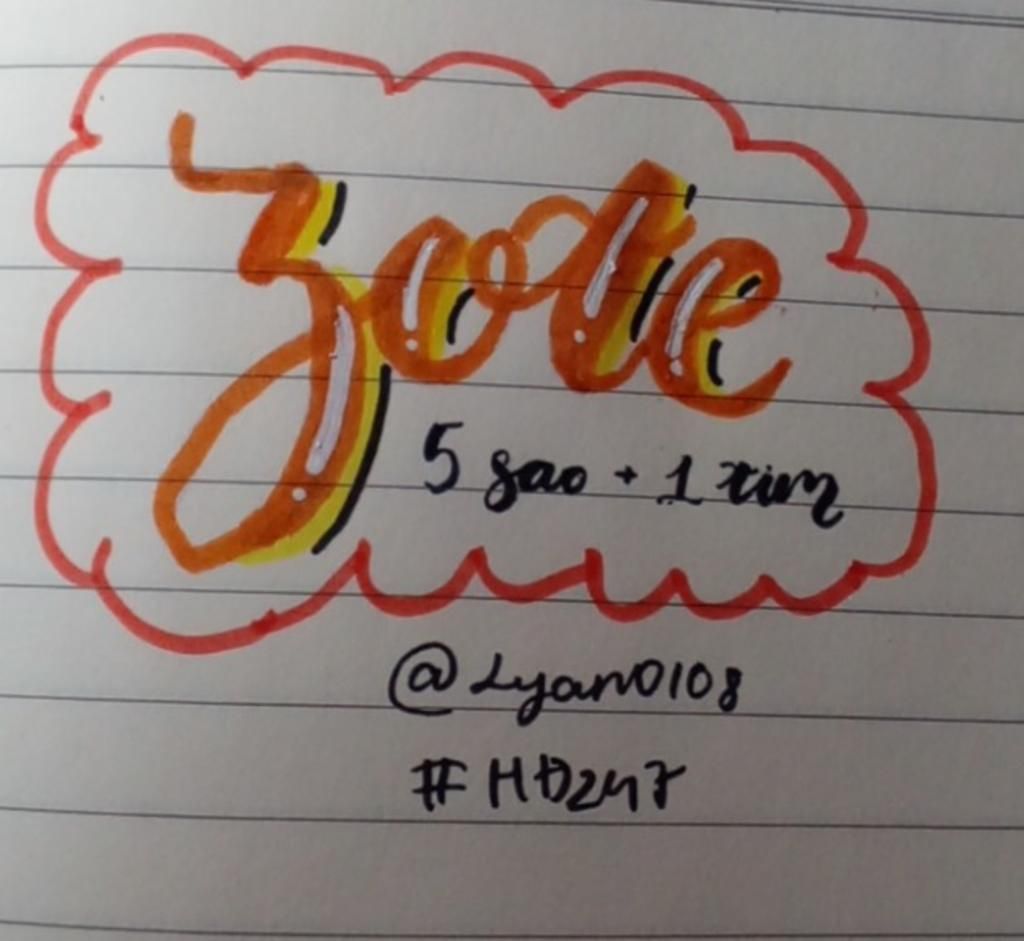 Zove
5 sao + 1 tim
@Lyan0108
#HĐ247